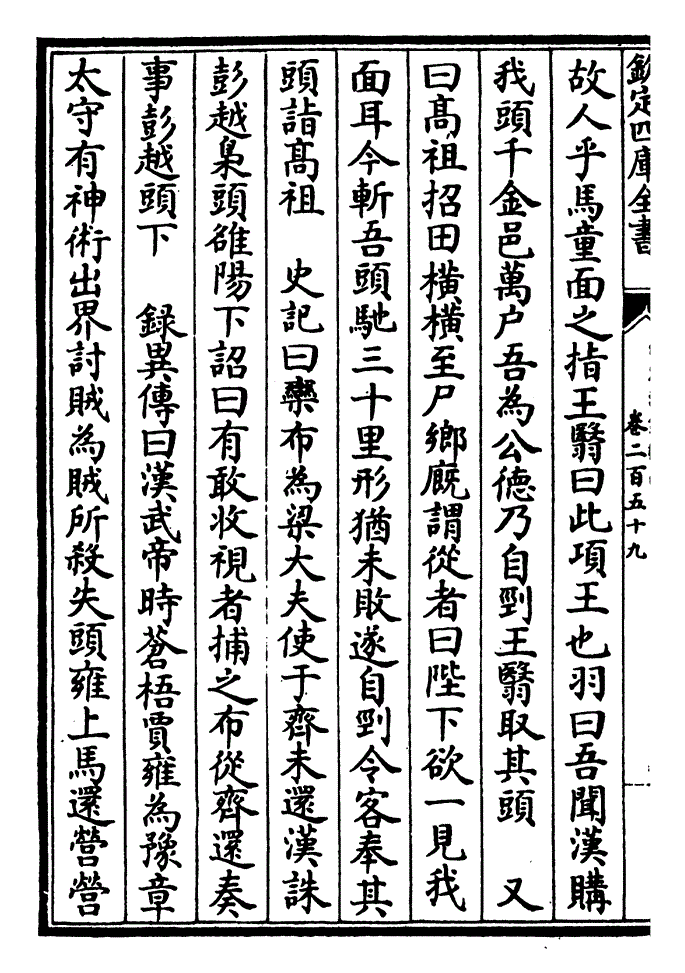 欽定四庫全書
卷二百五十九
故人乎馬童面之指王翳曰此項王也羽曰吾聞漢購
我頭千金邑萬户吾為公德乃自剄王翳取其頭　又
曰髙祖招田橫橫至尸鄉廐謂從者曰陛下欲一見我
面耳今斬吾頭馳三十里形猶未敗遂自剄令客奉其
頭詣髙祖　史記曰欒布為梁大夫使于齊未還漢誅
彭越梟頭雒陽下詔曰有敢收視者捕之布從齊還奏
事彭越頭下　録異傳曰漢武帝時蒼梧賈雍為豫章
太守有神術出界討賊為賊所殺失頭雍上馬還營營